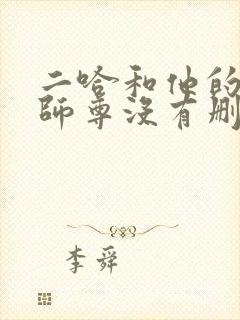 二哈和他的
师尊没有删
李舜